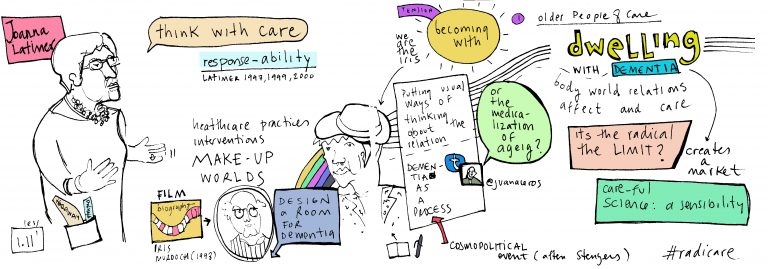 Joanna
Latimer
think with care
response-ability
LATIMER 1997, 1999, 2000
healthcare practices
interventions
MAKE-UP
WORLDS
FILM
biography
IRIS
MURDOCH (1998)
DESIGN
a ROOM
FOR
DEMENTIA
TENSION
we
are
the
iris
becoming
with
Putting usual
ways of
thinking
about the
relation
DEMEN-
TIA
AS
A
PROCESS
or
the
medica-
lization
of
ageig?
@juanaeros
COSMOPOLITICAL
event (after Stengers)
older People & Care
dwelling
WITH DEMENTIA
body world relations
affect and care
its the radical
the LIMIT?
creates
a
market
care-ful
Science: a sensibility
#radicare